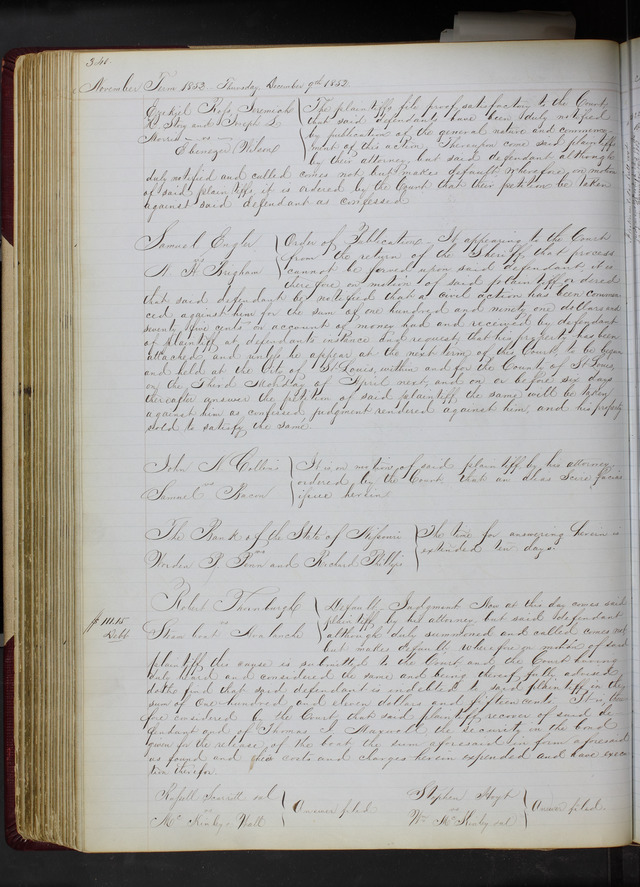 340.
November Term 1852. Thursday, December 9th 1852.
Ezekiel Jeremiah } The plaintiffs file proof satisfactory to the Court
H. and Joseph L. } that said defendant have been duly notified
vs } by publication of the general nature and commence
Ebenezer Wilson } ment of this action, Thereupon come said plaintiffs
by their attorney, but said defendant, although
duly notified and called comes not, but makes default. Wherefore on motion
of said plaintiffs, it is ordered by the Court that their petition be taken
against said defendant as confessed
Samuel Engler } Order of Publication. It appearing to the Court
vs } from the return of the Sheriff, that process
W. H. Brigham } cannot be served upon said defendant, it is
therefore on motion of said plaintiff ordered
that said defendant be notified that a civil action has been commen
ced against him for the sum of one hundred and ninety one dollars and
seventy five cents on account of money had and received by defendant
of plaintiff at defendants instance and request, that his property has been
attached, and unless he appear at the next term of this Court, to be begun
and held at the City of St Louis, within and for the County of St Louis,
on the Third Monday of April next, and on or before six days
thereafter answer the petition of said plaintiff, the same will be taken
against him as confessed, judgment rendered against him, and his property
sold to satisfy the same.
John N Collins } It is on motion of said plaintiff, by his attorney,
vs } ordered by the Court that an alias Scire facias
Samuel Bacon } issue herein
The Bank of the State of Missouri } The time for answering herein is
vs } extended ten days.
P. Penn and Richard Phillips
Robert Thornburgh } Default Judgment. Now at this day comes said
$111.15 vs } plaintiff, by his attorney, but said defendant
Debt Steam boat Avalanche } although duly summoned and called comes not
but makes default wherefore on motion of said
plaintiff this cause is submitted to the Court and the Court having
duly heard and considered the same and being thereof fully advised
doth find that said defendant is indebted to said plaintiff in the
sum of One hundred and eleven dollars and fifteen cents. It is there
fore considered by the Court, that said plaintiff recover of said de
fendant and of Thomas the security in the bond
given for the release of the boat, the sum aforesaid in form aforesaid
as found and costs and charges herein expended and have execu
tion therefor.
Russell val } Answer filed. Stephen Hoyt } Answer filed.
vs
Mc Kinley & Wm Mc Kinley val